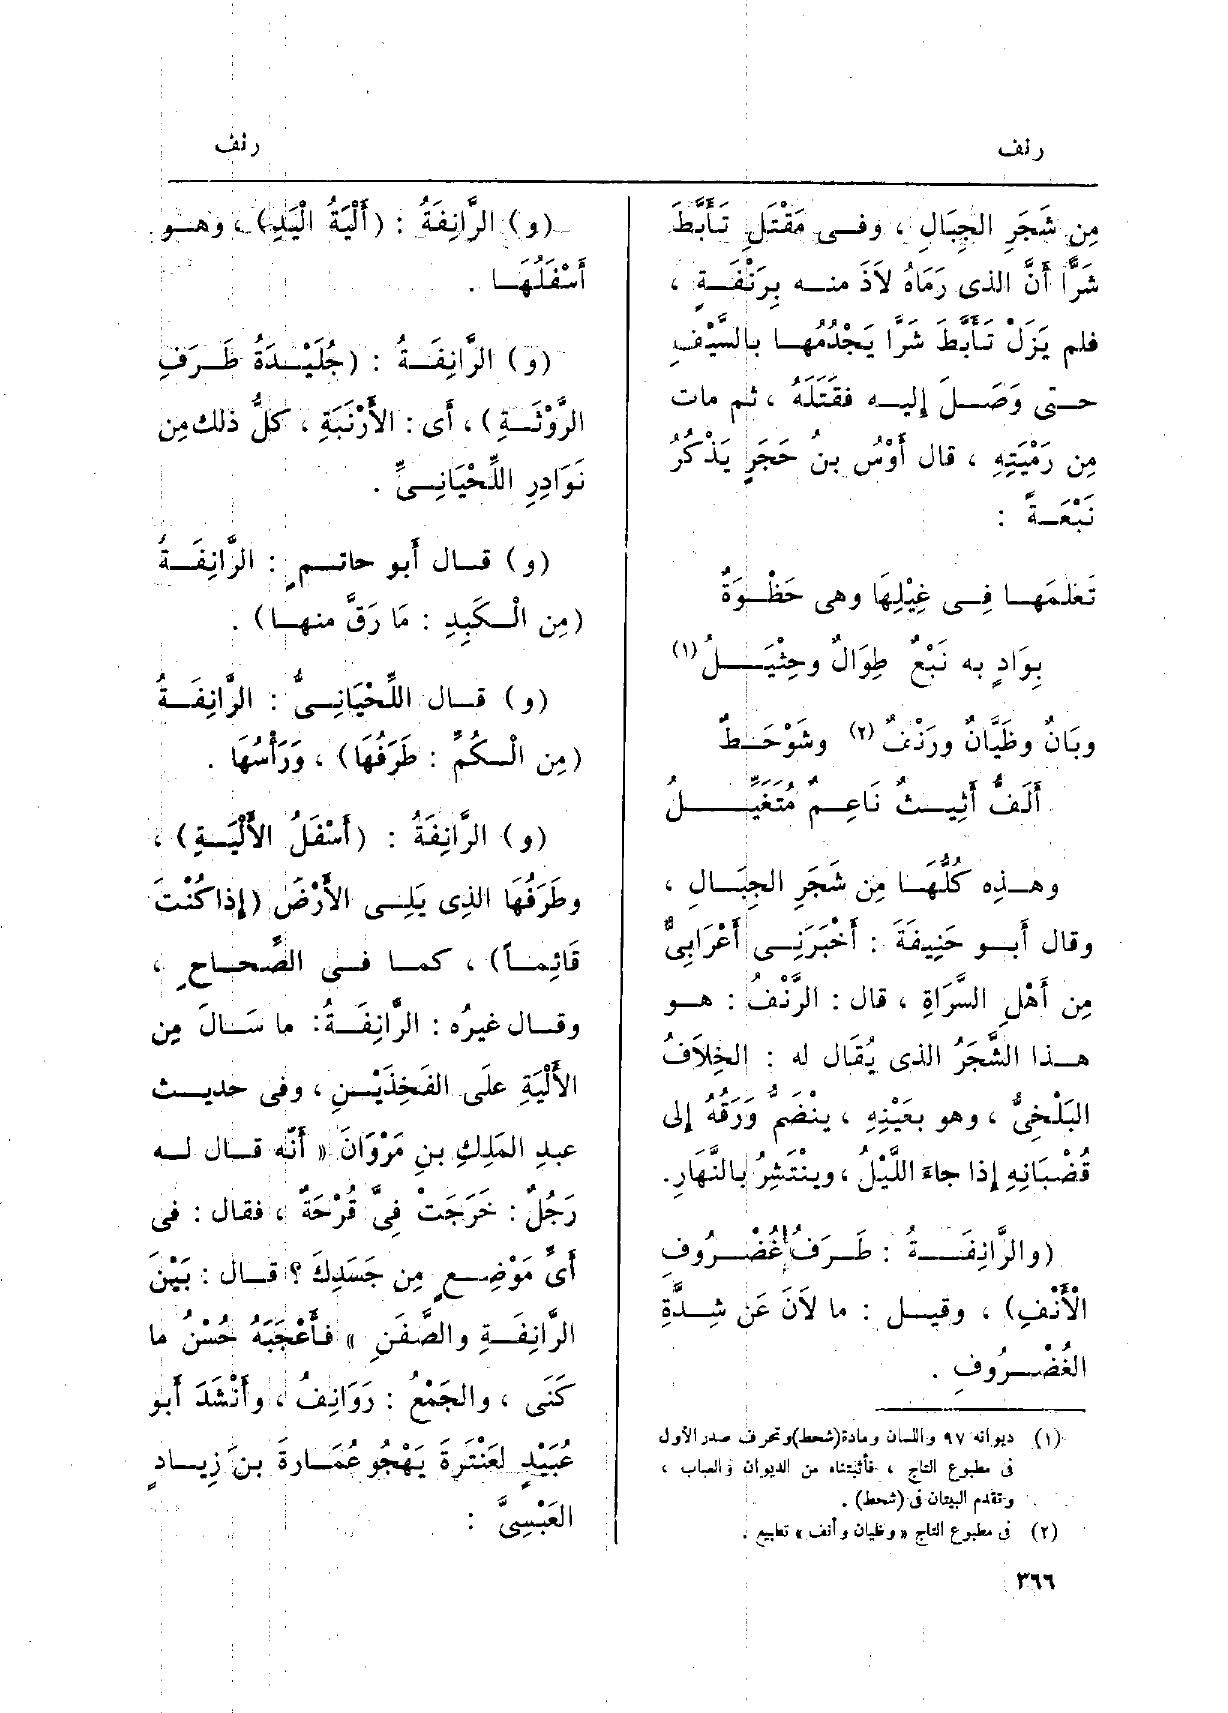 رنف
رنف
مِن شَجَرِ الجِبَالِ ، وفى مَقْتَلِ تَأَبَّطَ
شَرًّا أَنَّ الذى رَمَاهُ لاَذَ منه بِرَنْفَةٍ ،
فلم يَزَلْ تَأَبَّطَ شَرًّا يَجْدُمُهَا بالسَّيْفِ
حتى وَصَلَ إليه فقَتَلَهُ ، ثم مات
مِن رَمْيَتِهِ ، قال أَوْسُ بنُ حَجَرٍ يَذْكُرُ
نَبْعَةً :
تَعلمَها فِى غِيْلِهَا وهى حَظْوَةٌ
بِوَادٍ به نَبْعٌ طِوَالٌ وحِثْيَلُ (١)
وبَانٌ وظَيَّانٌ ورَنْفٌ (٢) وشَوْحَطٌ
أَلَفُّ أَثِيثٌ نَاعِمٌ مُتَغَيِّلُ
وهذِه كُلُّهَا مِن شَجَرِ الجِبَالِ ،
وقال أَبو حَنِيفَةَ : أَخْبَرَنِى أَعْرَابِىٌّ
مِن أَهْلِ السَّرَاةِ ، قال : الرَّنْفُ : هو
هذا الشَّجَرُ الذى يُقَال له : الخِلاَفُ
البَلْخِىُّ ، وهو بعَيْنِهِ ، ينْضَمُّ وَرَقُهُ إلى
قُضْبَانِهِ إذا جاءَ اللَّيْلُ ، وينْتَشِرُ بالنَّهَارِ.
(والرَّانِفَةُ : طَرَفُ غُضْرُوفِ
الْأَنْفِ) ، وقيل : ما لاَنَ عَن شِدَّةِ
الغُضْرُوفِ .
(١) ديوانه ٩٧ واللسان ومادة (شحط) وتحرف صدر الأول
فى مطبوع التاج ، فأثبتناه من الديوان والعباب ،
وتقدم البيتان فى (شحط) .
(٢) فى مطبوع التاج « وظيان وأنف » تطبيع .
٣٦٦
(و) الرَّانِفَةُ : (أَلْيَةُ الْيَدِ) ، وهو
أَسْفَلُهَا .
(و) الرَّانِفَةُ : (جُلَيْدَةُ طَرَفِ
الرَّوْثَةِ) ، أَى : الأَرْنَبَةِ ، كلُّ ذلك مِن
نَوَادِرِ اللِّحْيَانِىِّ .
(و) قال أَبو حاتمٍ : الرَّانِفَةُ
(مِن الْكَبِدِ : مَا رَقَّ منها) .
(و) قال اللِّحْيَانِىُّ : الرَّانِفَةُ
(مِن الْكُمِّ : طَرَفُهَا) ، وَرَأْسُهَا .
(و) الرَّانِفَةُ : (أَسْفَلُ الأَلْيَةِ) ،
وطَرَفُهَا الذى يَلِى الأَرْضَ (إذا كُنْتَ
قَائِماً) ، كما فى الصِّحاحِ ،
وقال غيرُه : الرَّانِفَةُ : ما سَالَ مِن
الأَلْيَةِ علَى الفَخِذَيْنِ ، وفى حديث
عبدِ المَلِكِ بنِ مَرْوَانَ « أَنَّه قال له
رَجُلٌ : خَرَجَتْ فِىَّ قُرْحَةٌ ، فقال : فى
أَىِّ مَوْضِعٍ مِن جَسَدِكَ ؟ قال : بَيْنَ
الرَّانِفَةِ والصَّفَنِ » فأَعْجَبَهُ حُسْنُ ما
كَنَى ، والجَمْعُ : رَوَانِفُ ، وأَنْشَدَ أَبو
عُبَيْدٍ لعَنْتَرَةَ يَهْجُو عُمَارةَ بنَ زِيادٍ
العَبْسِىَّ :